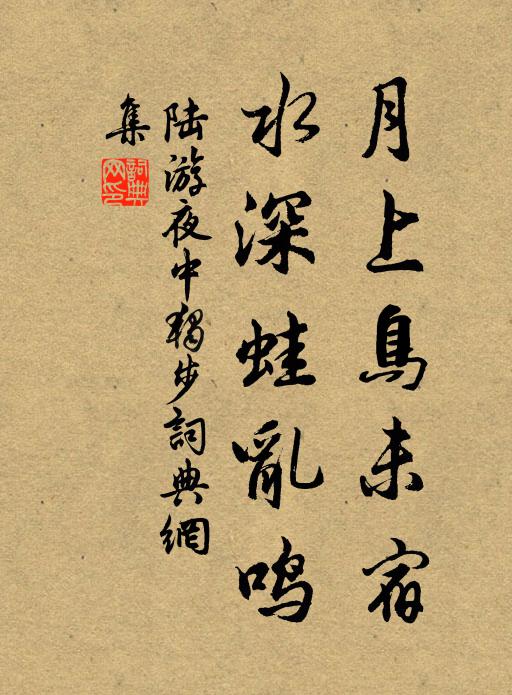 月上鳥未宿
水深蛙亂鳴
陆游夜中獨步詞典網
集
詞典
网印